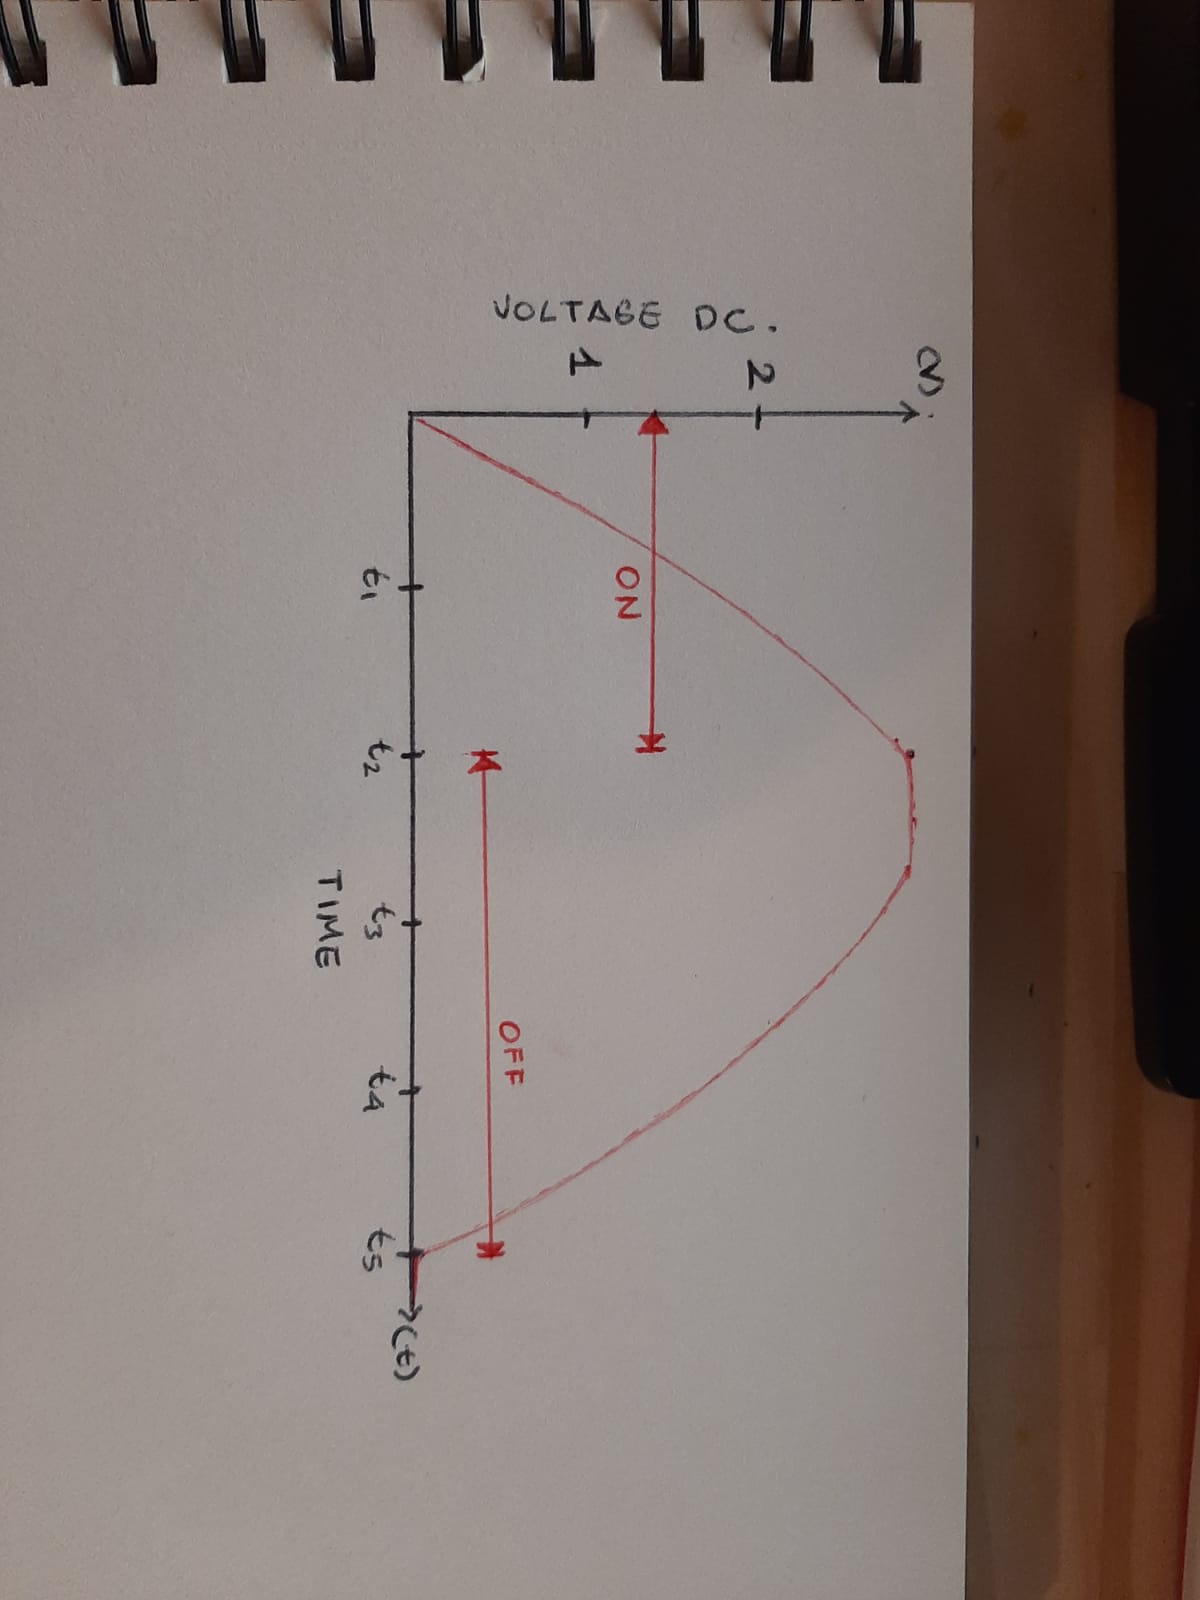 (V).
2
1
VOLTAGE DC.
ON
OFF
t1 t2 t3 t4 t5 (t)
TIME